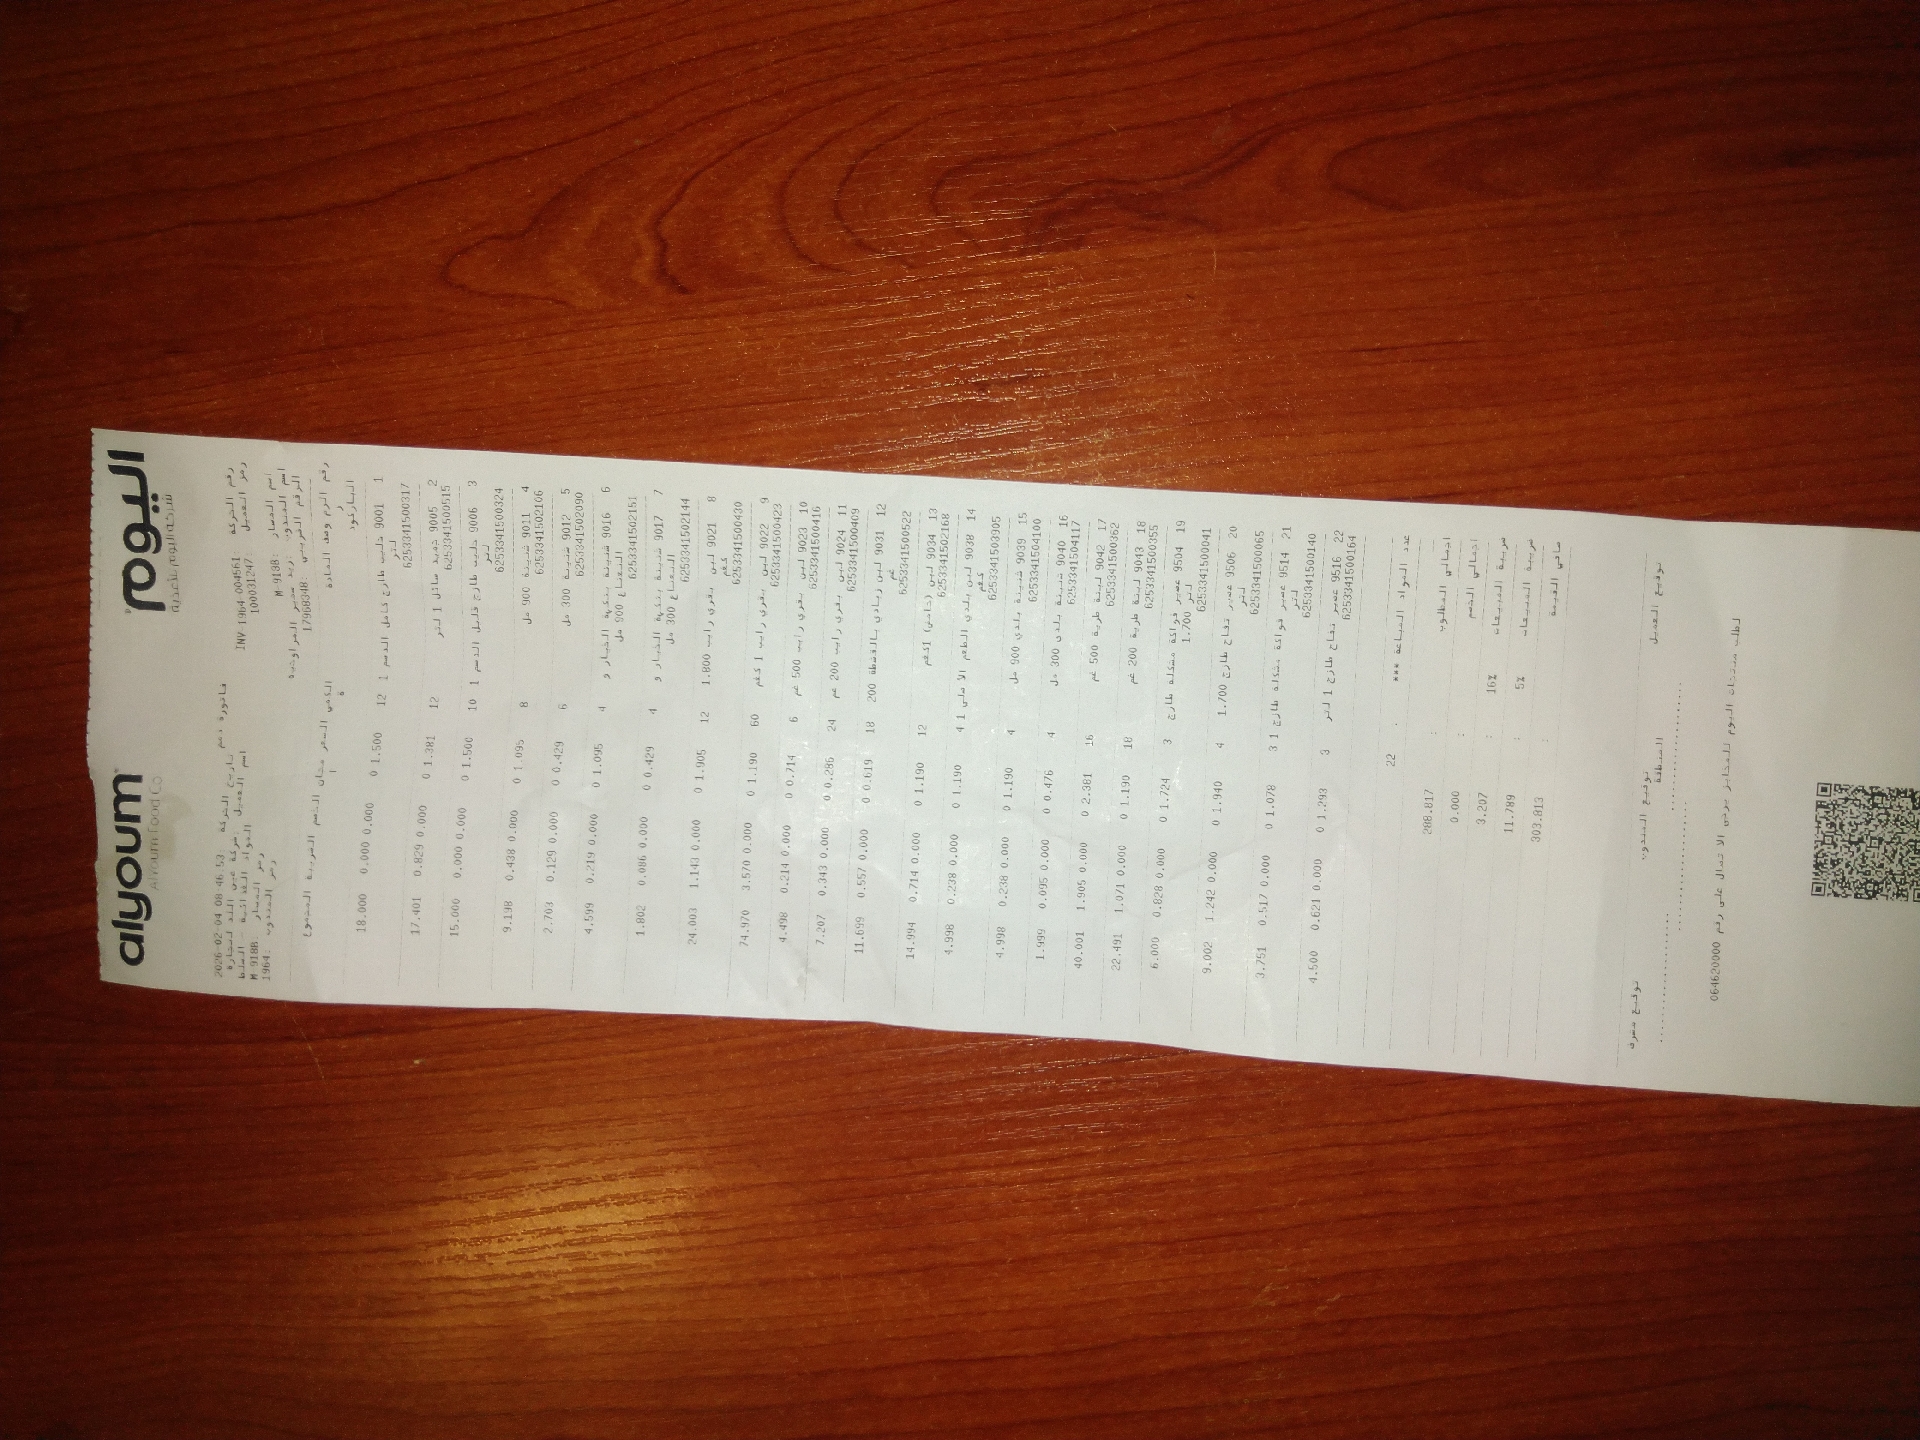 alyoum اليوم
Alyoum Food Co شركة اليوم للأغذية
فاتورة ذمم
رقم الحركة INV-1964-004561 تاريخ الحركة: 2026-02-04 08:46:53
رمز العميل 100031247 اسم العميل: شركة عين اللد لتجارة
المواد الغذائية - السلط
اسم المسار: M 9188 رمز المسار: M 9188
اسم المندوب: رمز المندوب: 1964
الرقم الضريبي 17968348
رقم الرمز وصف المادة الكمي السعر مجان الخصم الضريبة المجموع
الباركود
1 9001 حليب طازج كامل الدسم 1 12 1.500 0 0.000 0.000 18.000
لتر
6253341500317
2 9005 شنينة سائل 1 لتر 12 1.381 0 0.000 0.829 17.401
6253341500515
3 9006 حليب طازج قليل الدسم 1 10 1.500 0 0.000 0.000 15.000
لتر
6253341500324
4 9011 شنينة 900 مل 8 1.095 0 0.000 0.438 9.198
6253341502106
5 9012 شنينة 300 مل 6 0.429 0 0.000 0.129 2.703
6253341502090
6 9016 شنينة بنكهة الخيار و 4 1.095 0 0.000 0.219 4.599
النعناع 900 مل
6253341502151
7 9017 شنينة بنكهة الخيار و 4 0.429 0 0.000 0.086 1.802
النعناع 300 مل
6253341502144
8 9021 لبن بقري رايب 1.800 12 1.905 0 0.000 1.143 24.003
كغم
6253341500430
9 9022 لبن بقري رايب 1 كغم 60 1.190 0 0.000 3.570 74.970
6253341500423
10 9023 لبن بقري رايب 500 غم 6 0.714 0 0.000 0.214 4.498
6253341500416
11 9024 لبن بقري رايب 200 غم 24 0.286 0 0.000 0.343 7.207
6253341500409
12 9031 لبن زبادي بالقشطة 200 18 0.619 0 0.000 0.557 11.699
غم
6253341500522
13 9034 لبن (خاص) 1كغم 12 1.190 0 0.000 0.714 14.994
6253341502168
14 9038 لبن بلدي الطعم الاصلي 1 4 1.190 0 0.000 0.238 4.998
كغم
6253341503905
15 9039 شنينة بلدي 900 مل 4 1.190 0 0.000 0.238 4.998
6253341504100
16 9040 شنينة بلدي 300 مل 4 0.476 0 0.000 0.095 1.999
6253341504117
17 9042 لبنة طرية 500 غم 16 2.381 0 0.000 1.905 40.001
6253341500362
18 9043 لبنة طرية 200 غم 18 1.190 0 0.000 1.071 22.491
6253341500355
19 9504 عصير فواكة مشكلة طازج 3 1.724 0 0.000 0.828 6.000
1.700 لتر
6253341500041
20 9506 عصير تفاح طازج 1.700 4 1.940 0 0.000 1.242 9.002
لتر
6253341500065
21 9514 عصير فواكة مشكلة طازج 1 3 1.078 0 0.000 0.517 3.751
لتر
6253341500140
22 9516 عصير تفاح طازج 1 لتر 3 1.293 0 0.000 0.621 4.500
6253341500164
عدد المواد المباعة *** : 22
اجمالي المطلوب : 288.817
اجمالي الخصم : 0.000
ضريبة المبيعات 16% : 3.207
ضريبة المبيعات 5% : 11.789
صافي القيمة : 303.813
توقيع العميل توقيع المندوب توقيع مشرف
المنطقة
لطلب منتجات اليوم للمخابز يرجى الاتصال على رقم 064620000